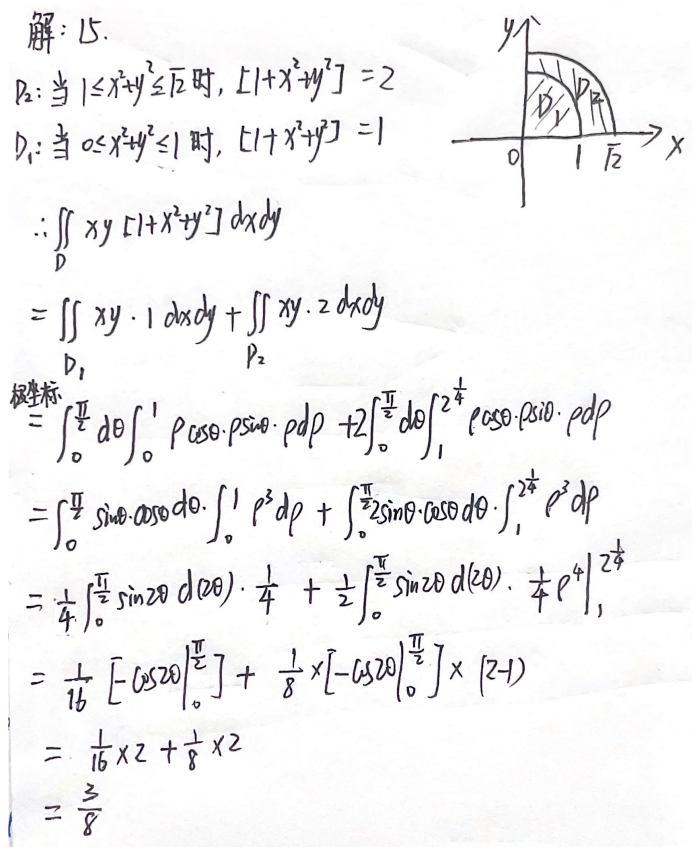 解: 15.
D₂: 当 1≤x²+y²≤√2 时, [1+x²+y²] = 2
D₁: 当 0≤x²+y²≤1 时, [1+x²+y²] = 1
y
D₁
D₂
0 1 √2 x
∴ ∬_D xy [1+x²+y²] dxdy
= ∬_{D₁} xy · 1 dxdy + ∬_{D₂} xy · 2 dxdy
极坐标
= ∫₀^{π/2} dθ ∫₀^1 ρcosθ·ρsinθ·ρdρ + 2∫₀^{π/2} dθ ∫₁^{2^{1/4}} ρcosθ·ρsiθ·ρdρ
= ∫₀^{π/2} sinθ·cosθ dθ · ∫₀^1 ρ³dρ + ∫₀^{π/2} 2sinθ·cosθ dθ · ∫₁^{2^{1/4}} ρ³dρ
= 1/4 ∫₀^{π/2} sin2θ d(2θ) · 1/4 + 1/2 ∫₀^{π/2} sin2θ d(2θ) · 1/4 ρ⁴ |₁^{2^{1/4}}
= 1/16 [-cos2θ |₀^{π/2}] + 1/8 × [-cos2θ |₀^{π/2}] × (2-1)
= 1/16 × 2 + 1/8 × 2
= 3/8